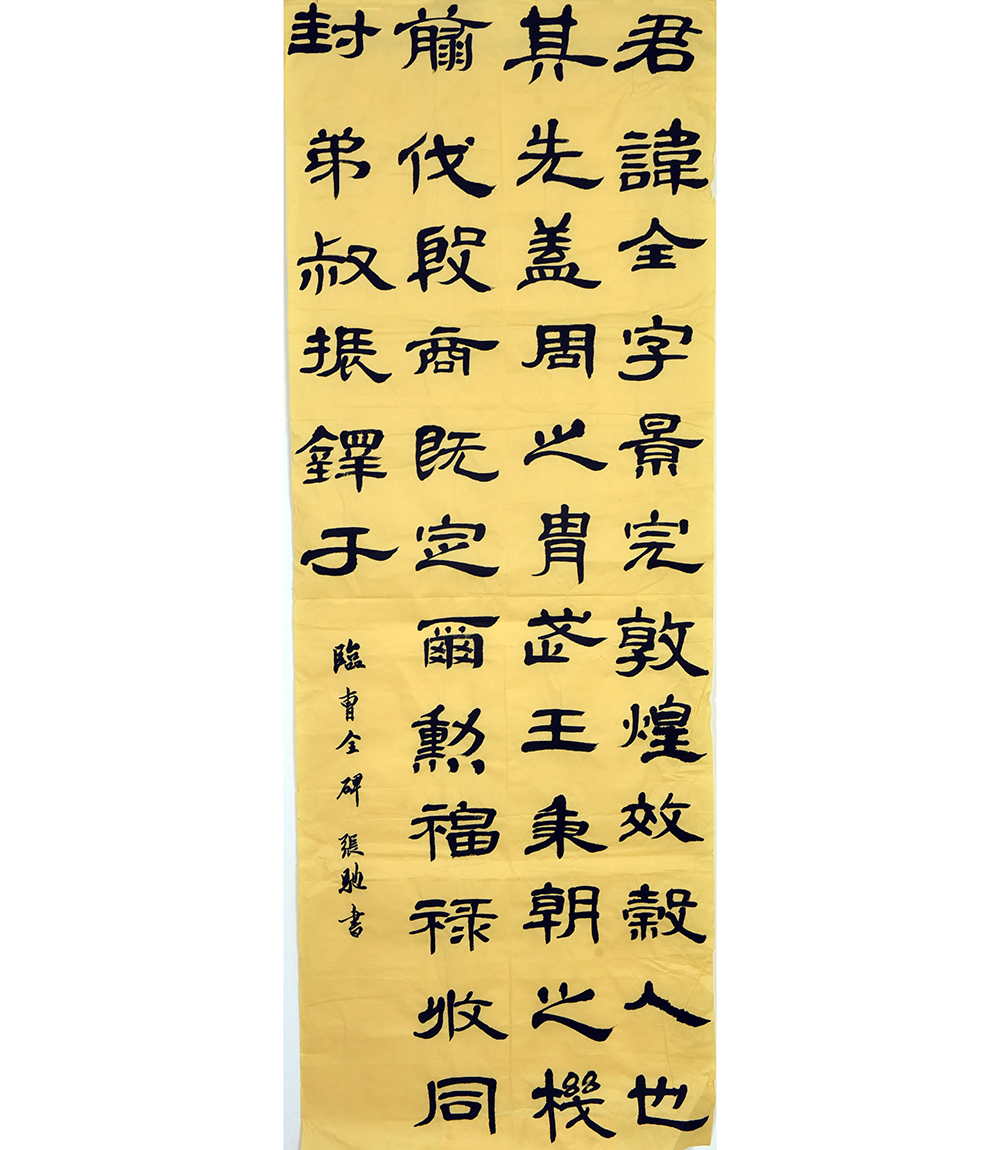 君諱全字景完敦煌效穀人也
其先蓋周之胄武王秉朝之機
翦伐殷商既定爾勳福祿收同
封弟叔振鐸于
臨曹全碑 張馳書